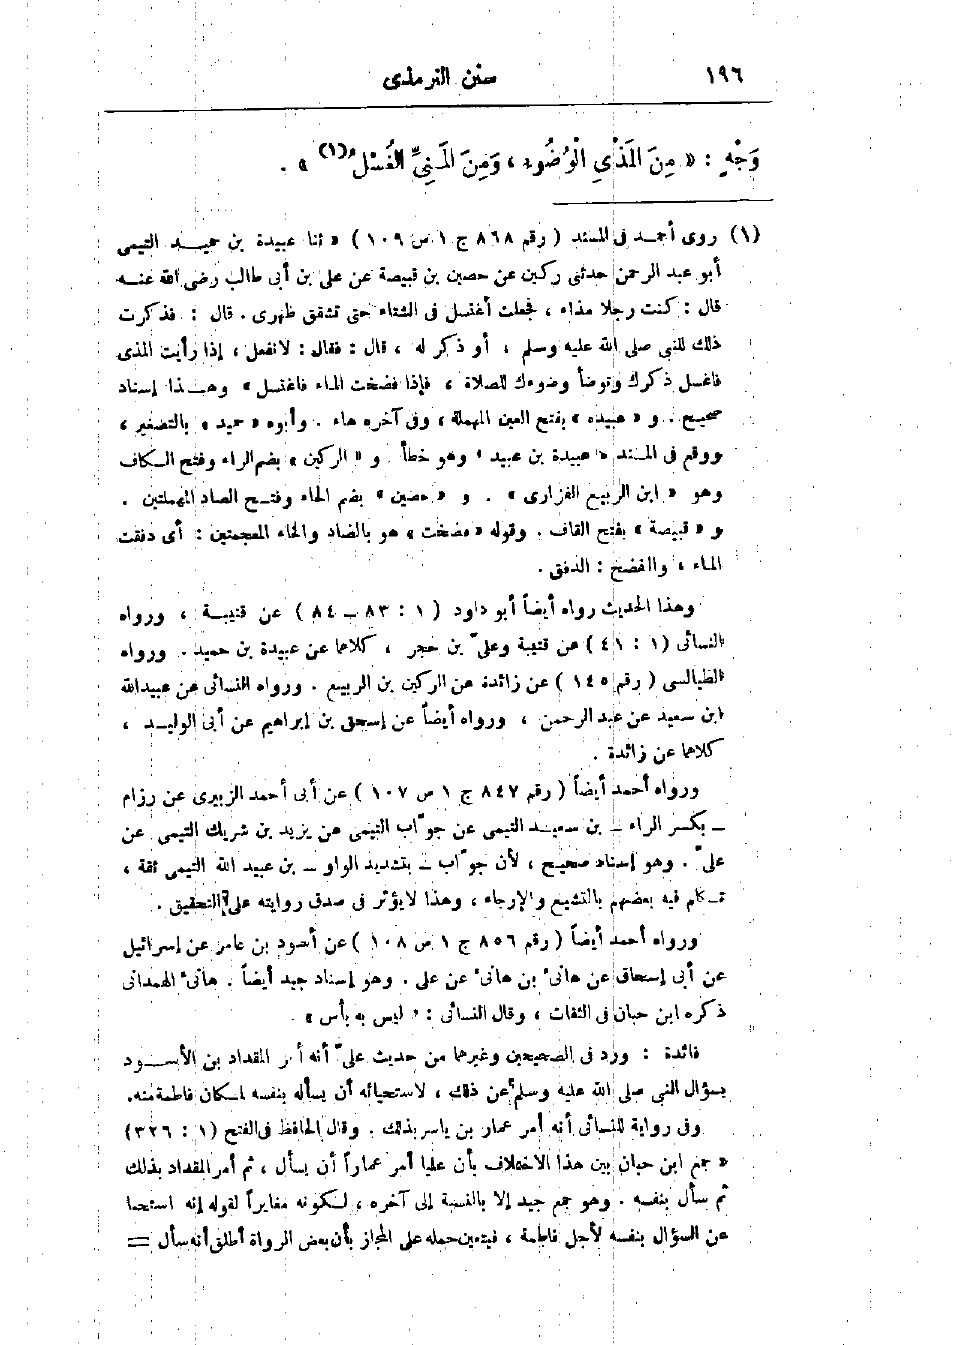 ١٩٦
سنن الترمذى
وَجْهٍ : « مِنَ المَذْيِ الْوُضُوءِ ، وَمِنَ المَنِيِّ الْغُسْلُ (١) » .
(١) روى أحمد فى المسند ( رقم ٨٦٨ ج ١ ص ١٠٩ ) « ثنا عبيدة بن حميد التيمى
أبو عبد الرحمن حدثنى ركين عن حصين بن قبيصة عن على بن أبى طالب رضى الله عنه
قال : كنت رجلا مذاء ، فجعلت أغتسل فى الشتاء حتى تشقق ظهرى . قال : فذكرت
ذلك للنبى صلى الله عليه وسلم ، أو ذكر له ، قال : فقال : لاتفعل ، إذا رأيت المذى
فاغسل ذكرك وتوضأ وضوءك للصلاة ، فإذا فضخت الماء فاغتسل » وهذا إسناد
صحيح . و « عبيدة » بفتح العين المهملة ، وفى آخره هاء . وأبوه « حميد » بالتصغير ،
ووقع فى المسند « عبيدة بن عبيد » وهو خطأ . و « الركين » بضم الراء وفتح الكاف
وهو « ابن الربيع الفزارى » . و « حصين » بضم الحاء وفتح الصاد المهملتين .
و « قبيصة » بفتح القاف . وقوله « فضخت » هو بالضاد والخاء المعجمتين : أى دفقت
الماء ، والفضخ : الدفق .
وهذا الحديث رواه أيضاً أبو داود ( ١ : ٨٣ ــ ٨٤ ) عن قتيبة ، ورواه
النسائى (١ : ٤١ ) عن قتيبة وعلىّ بن حجر ، كلاهما عن عبيدة بن حميد . ورواه
الطيالسى ( رقم ١٤٥ ) عن زائدة عن الركين بن الربيع . ورواه النسائى عن عبيدالله
ابن سعيد عن عبد الرحمن ، ورواه أيضاً عن إسحق بن إبراهيم عن أبى الوليد ،
كلاهما عن زائدة .
ورواه أحمد أيضاً ( رقم ٨٤٧ ج ١ ص ١٠٧ ) عن أبى أحمد الزبيرى عن رزام
ــ بكسر الراء ــ بن سعيد التيمى عن جوّاب التيمى عن يزيد بن شريك التيمى عن
علىّ . وهو إسناد صحيح ، لأن جوّاب ــ بتشديد الواو ــ بن عبيد الله التيمى ثقة ،
تكلم فيه بعضهم بالتشيع والإرجاء ، وهذا لايؤثر فى صدق روايته على التحقيق .
ورواه أحمد أيضاً ( رقم ٨٥٦ ج ١ ص ١٠٨ ) عن أسود بن عامر عن إسرائيل
عن أبى إسحاق عن هانئ بن هانئ عن على . وهو إسناد جيد أيضاً . هانئ الهمدانى
ذكره ابن حبان فى الثقات ، وقال النسائى : « ليس به بأس » .
فائدة : ورد فى الصحيحين وغيرهما من حديث علىّ أنه أمر المقداد بن الأسود
بسؤال النبى صلى الله عليه وسلم عن ذلك ، لاستحيائه أن يسأله بنفسه لمكان فاطمة منه.
وفى رواية للنسائى أنه أمر عمار بن ياسر بذلك . وقال الحافظ فى الفتح (١ : ٣٢٦)
« جمع ابن حبان بين هذا الاختلاف بأن عليا أمر عماراً أن يسأل ، ثم أمر المقداد بذلك
ثم سأل بنفسه . وهو جمع جيد إلا بالنسبة إلى آخره ، لكونه مغايراً لقوله إنه استحيا
عن السؤال بنفسه لأجل فاطمة ، فيتعين حمله على المجاز بأن بعض الرواة أطلق أنه سأل =